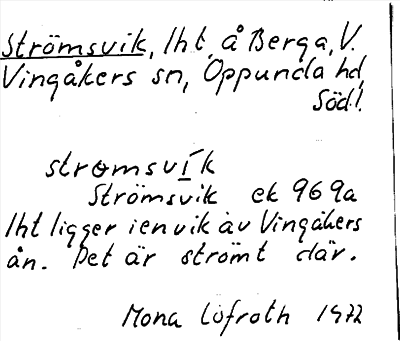 Strömsvik, lht, å Berga, V.
Vingåkers sn, Oppunda hd,
Södl.
strømsvík
Strömsvik ek 969a
lht ligger i en vik av Vingåkers
ån. Det är strömt där.
Mona Löfroth 1972